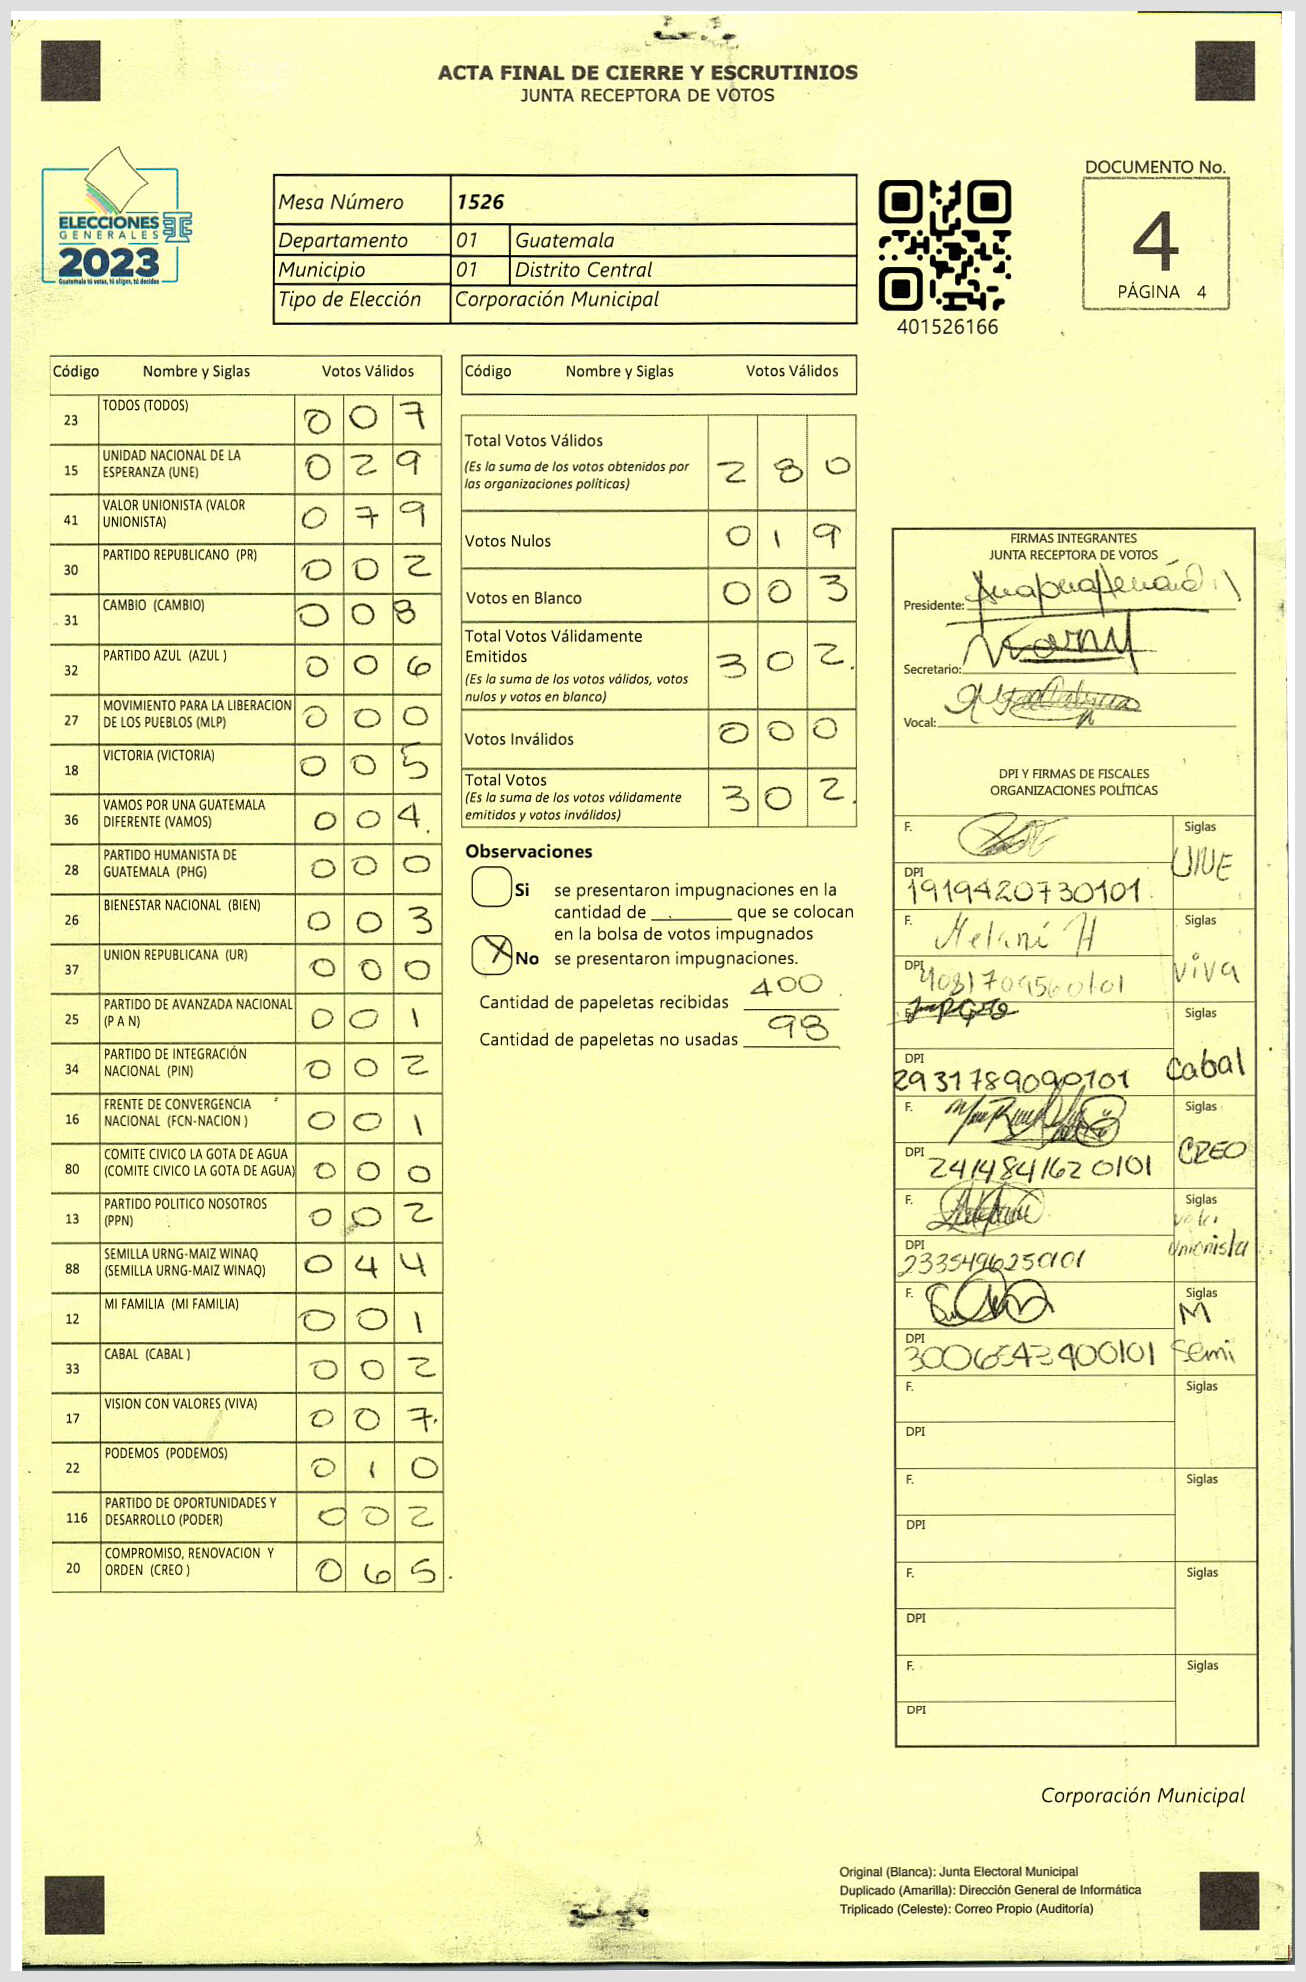 ACTA FINAL DE CIERRE Y ESCRUTINIOS
JUNTA RECEPTORA DE VOTOS
ELECCIONES
GENERALES
2023
Guatemala tú votas, tú eliges, tú decides
Mesa Número 1526
Departamento 01 Guatemala
Municipio 01 Distrito Central
Tipo de Elección Corporación Municipal
401526166
DOCUMENTO No.
4
PÁGINA 4
Código Nombre y Siglas Votos Válidos
23 TODOS (TODOS) 0 0 7
15 UNIDAD NACIONAL DE LA
ESPERANZA (UNE) 0 2 9
41 VALOR UNIONISTA (VALOR
UNIONISTA) 0 7 9
30 PARTIDO REPUBLICANO (PR) 0 0 2
31 CAMBIO (CAMBIO) 0 0 8
32 PARTIDO AZUL (AZUL ) 0 0 6
27 MOVIMIENTO PARA LA LIBERACION
DE LOS PUEBLOS (MLP) 0 0 0
18 VICTORIA (VICTORIA) 0 0 5
36 VAMOS POR UNA GUATEMALA
DIFERENTE (VAMOS) 0 0 4.
28 PARTIDO HUMANISTA DE
GUATEMALA (PHG) 0 0 0
26 BIENESTAR NACIONAL (BIEN) 0 0 3
37 UNION REPUBLICANA (UR) 0 0 0
25 PARTIDO DE AVANZADA NACIONAL
(P A N) 0 0 1
34 PARTIDO DE INTEGRACIÓN
NACIONAL (PIN) 0 0 2
16 FRENTE DE CONVERGENCIA
NACIONAL (FCN-NACION ) 0 0 1
80 COMITE CIVICO LA GOTA DE AGUA
(COMITE CIVICO LA GOTA DE AGUA) 0 0 0
13 PARTIDO POLITICO NOSOTROS
(PPN) 0 0 2
88 SEMILLA URNG-MAIZ WINAQ
(SEMILLA URNG-MAIZ WINAQ) 0 4 4
12 MI FAMILIA (MI FAMILIA) 0 0 1
33 CABAL (CABAL ) 0 0 2
17 VISION CON VALORES (VIVA) 0 0 7.
22 PODEMOS (PODEMOS) 0 1 0
116 PARTIDO DE OPORTUNIDADES Y
DESARROLLO (PODER) 0 0 2
20 COMPROMISO, RENOVACION Y
ORDEN (CREO ) 0 6 5.
Código Nombre y Siglas Votos Válidos
Total Votos Válidos
(Es la suma de los votos obtenidos por
las organizaciones políticas) 2 8 0
Votos Nulos 0 1 9
Votos en Blanco 0 0 3
Total Votos Válidamente
Emitidos 3 0 2.
(Es la suma de los votos válidos, votos
nulos y votos en blanco)
Votos Inválidos 0 0 0
Total Votos 3 0 2.
(Es la suma de los votos válidamente
emitidos y votos inválidos)
Observaciones
Si se presentaron impugnaciones en la
cantidad de ________ que se colocan
en la bolsa de votos impugnados
X No se presentaron impugnaciones.
Cantidad de papeletas recibidas 400
Cantidad de papeletas no usadas 98
FIRMAS INTEGRANTES
JUNTA RECEPTORA DE VOTOS
Presidente:
Secretario:
Vocal:
DPI Y FIRMAS DE FISCALES
ORGANIZACIONES POLÍTICAS
F. Siglas
UNE
DPI 1919420730101
F. Melani H Siglas
DPI 4081709560101 viva
F. Siglas
DPI 2931789090101 Cabal
F. Siglas
CREO
DPI 2414841620101
F. Siglas
Valor
DPI 2335496250101 Unionista
F. Siglas
M
DPI 3006542400101 Semi
F. Siglas
DPI
F. Siglas
DPI
F. Siglas
DPI
F. Siglas
DPI
Corporación Municipal
Original (Blanca): Junta Electoral Municipal
Duplicado (Amarilla): Dirección General de Informática
Triplicado (Celeste): Correo Propio (Auditoría)